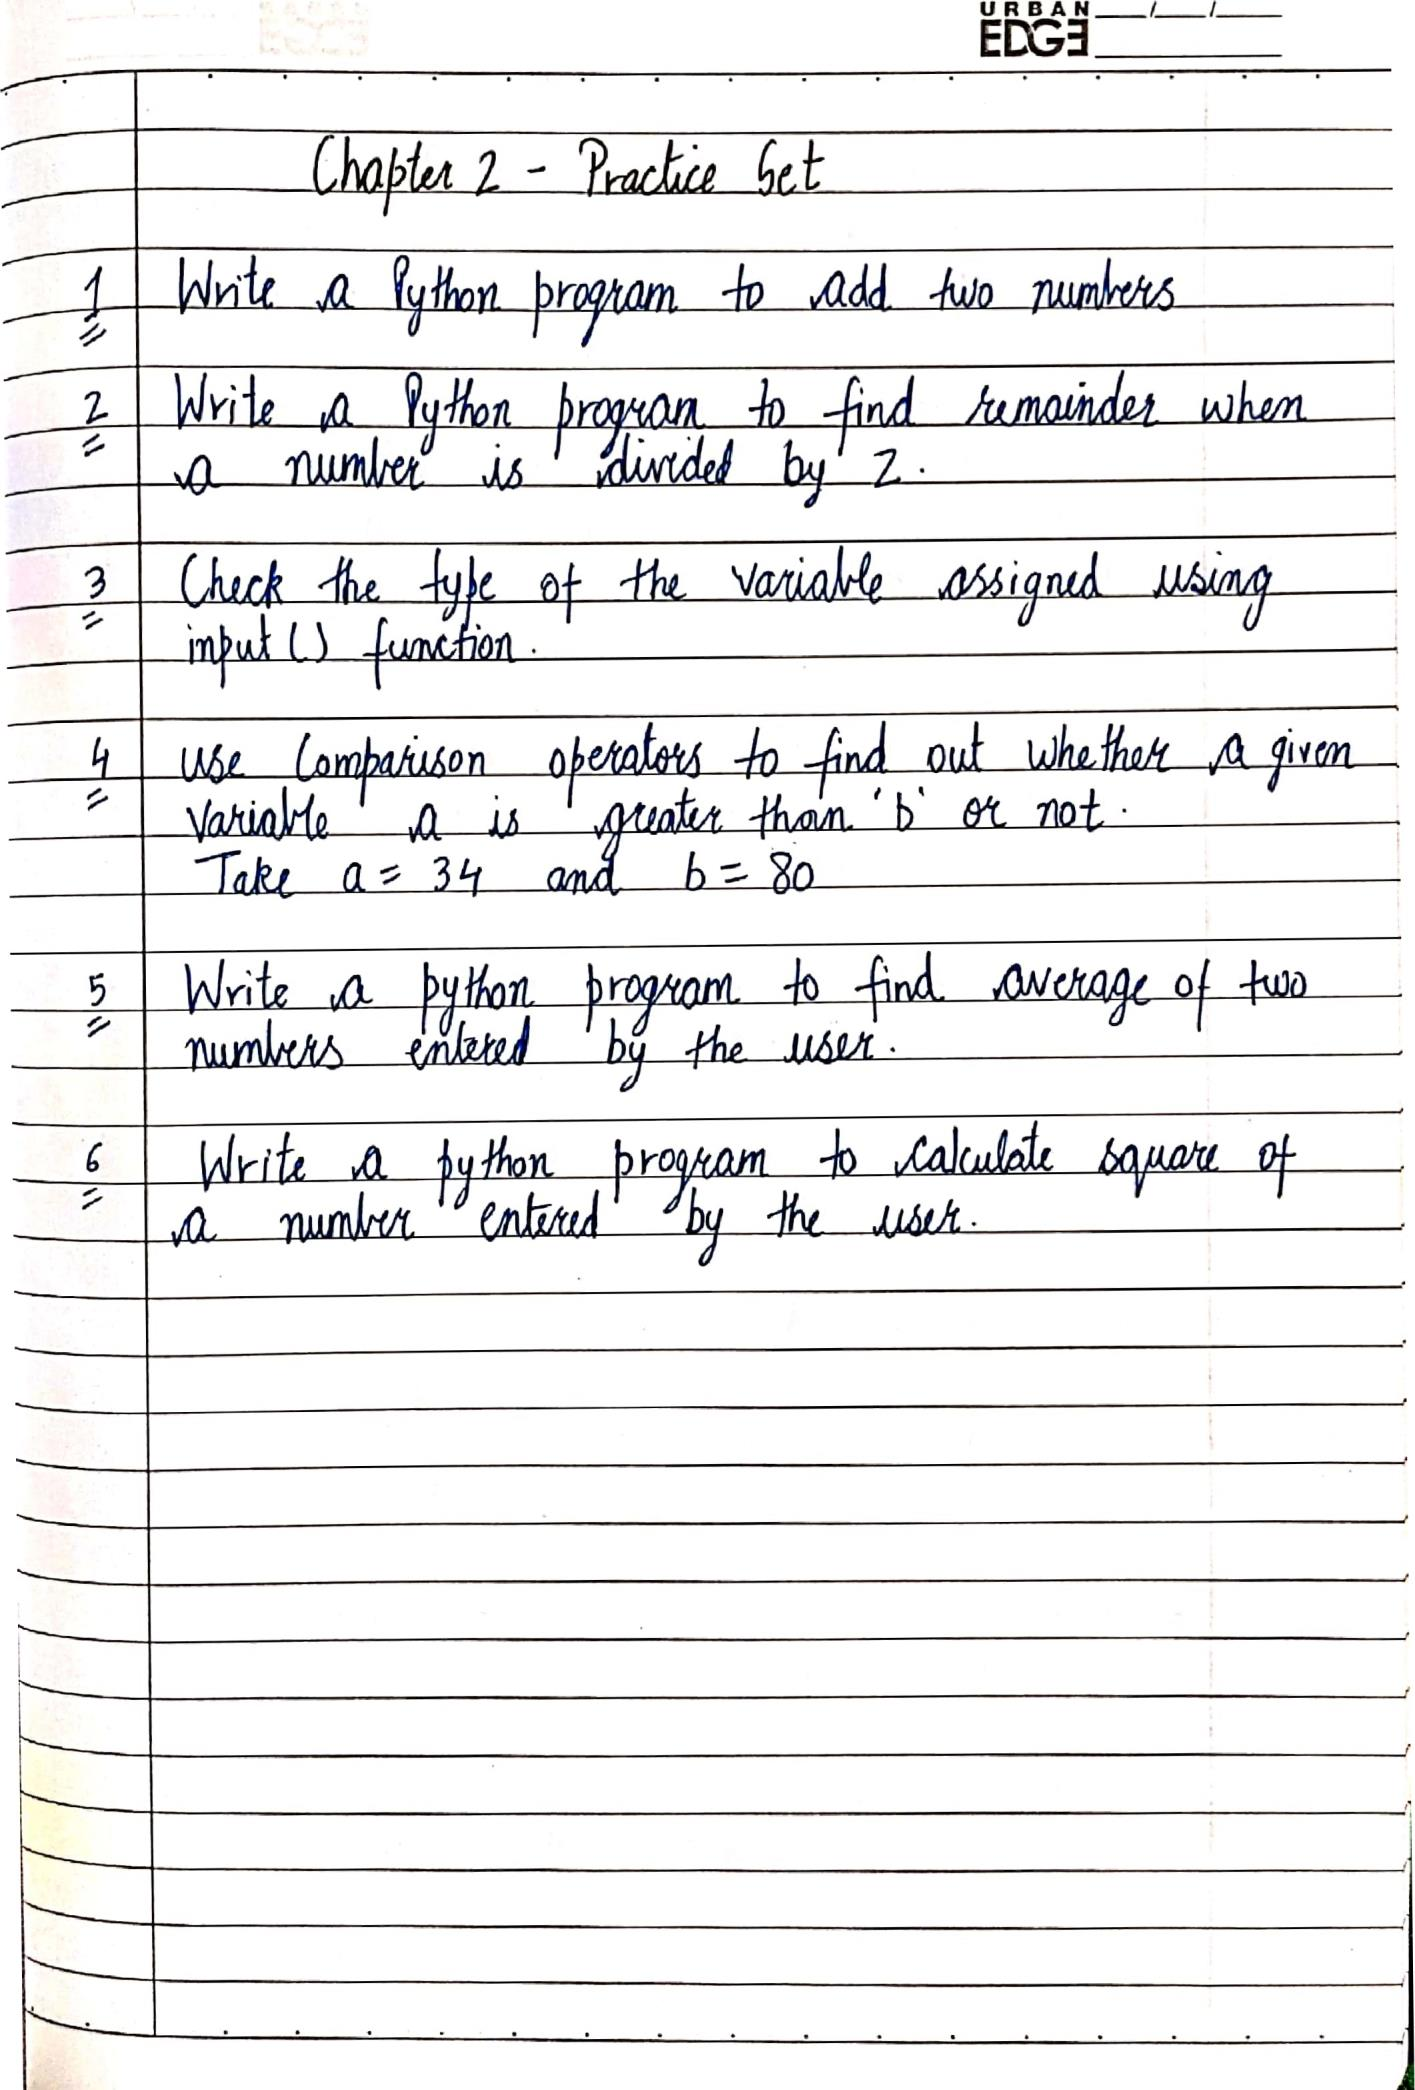 URBAN
EDGE
Chapter 2 - Practice Set
1 Write a Python program to add two numbers
2 Write a Python program to find remainder when
a number is divided by 2.
3 Check the type of the variable assigned using
input() function.
4 use Comparison operators to find out whether a given
variable a is greater than 'b' or not.
Take a = 34 and b = 80
5 Write a python program to find average of two
numbers entered by the user.
6 Write a python program to calculate square of
a number entered by the user.